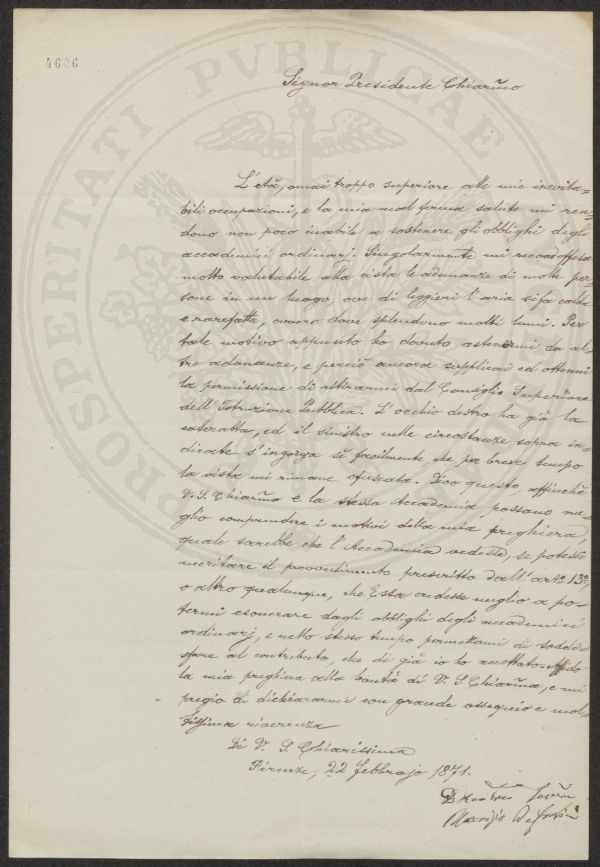 4606
PROSPERITATI PVBLICAE
Signor Presidente Chiarimo
L'età, omai troppo superiore alle mie inevita=
bili occupazioni, e la mia mal ferma salute mi ren=
dono non poco inabile a sostenere gli obblighi degli
accademici ordinarj. Singolarmente mi
molto valutabile alla vista le adunanze di molte per=
sone in un luogo, ove di leggieri l'aria si fa calda
e rarefatta, ovvero dove splendono molti lumi. Per
tale motivo appunto ho dovuto astenermi da al=
tre adunanze, e perciò ancora supplicai ed ottenni
la permissione di ritirarmi dal Consiglio Superiore
dell'Istruzione Pubblica. L'occhio destro ha già la
cateratta, ed il sinistro nelle circostanze sopra in=
dicate s'ingorga sì facilmente, che per breve tempo
la vista mi rimane ofuscata. Dico questo, affinchè
V. S. Chiarima e la stessa Accademia possano me=
glio comprendere i motivi della mia preghiera,
quale sarebbe, che l'Accademia vedesse, se potessi
meritare il provvedimento prescritto dall'arto 13o,
o altro qualunque, che Essa credesse meglio a po=
termi esonerare dagli obblighi degli accademici
ordinarj, e nello stesso tempo permettami di soddi=
sfare al contributo, che di già io ho accettato. Affido
la mia preghiera alla bontà di V. S. Chiarima, e mi
pregio di dichiararmi con grande ossequio e mol=
tissima riverenza
Di V. S. Chiarissima
Firenze, 22 febbrajo 1871.